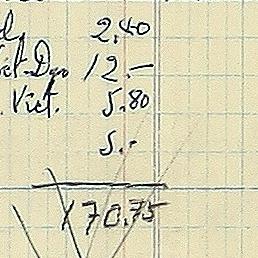 2.40
12.-
. Vict. 5.80
5.-
170.75